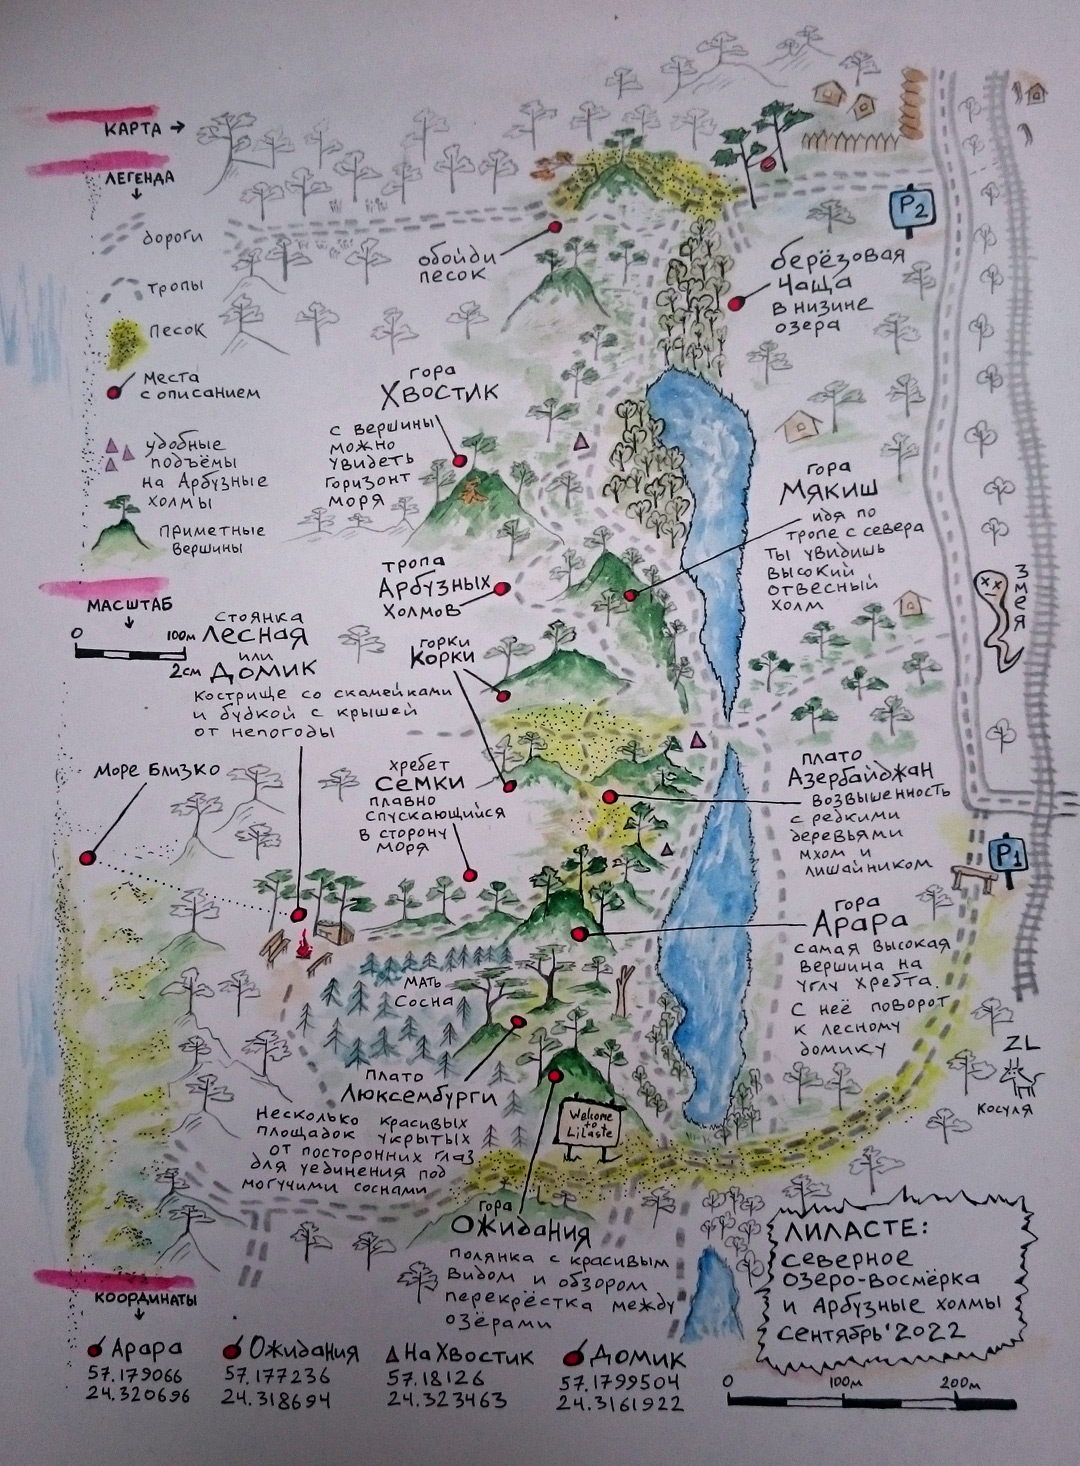 КАРТА →
ЛЕГЕНДА
↓
дороги
тропы
песок
места
с описанием
удобные
подъёмы
на Арбузные
холмы
приметные
вершины
МАСШТАБ
↓
0 100м
2см
обойди
песок
P2
берёзовая
чаща
в низине
озера
гора
Хвостик
с вершины
можно
увидеть
горизонт
моря
гора
Мякиш
идя по
тропе с севера
ты увидишь
высокий
отвесный
холм
змея
тропа
Арбузных
холмов
горки
Корки
стоянка
Лесная
или
Домик
кострище со скамейками
и будкой с крышей
от непогоды
Море Близко
хребет
Семки
плавно
спускающийся
в сторону
моря
плато
Азербайджан
возвышенность
с редкими
деревьями
мхом и
лишайником
P1
гора
Арара
самая высокая
вершина на
углу хребта.
С неё поворот
к лесному
домику
ZL
косуля
мать
Сосна
плато
Люксембурги
Несколько красивых
площадок укрытых
от посторонних глаз
для уединения под
могучими соснами
Welcome
to
LiLaste
гора
Ожидания
полянка с красивым
видом и обзором
перекрёстка между
озёрами
ЛИЛАСТЕ:
северное
озеро-восмёрка
и Арбузные холмы
сентябрь'2022
КООРДИНАТЫ
↓
Арара
57.179066
24.320696
Ожидания
57.177236
24.318694
На Хвостик
57.18126
24.323463
Домик
57.1799504
24.3161922
0 100м 200м